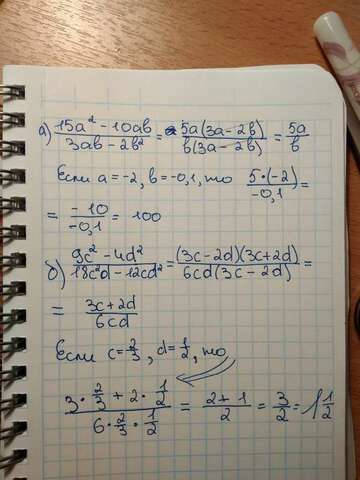 а) (15a² - 10ab)/(3ab - 2b²) = 5a(3a - 2b)/b(3a - 2b) = 5a/b
Если a = -2, b = -0,1, то 5·(-2)/-0,1 =
= -10/-0,1 = 100
б) (9c² - 4d²)/(18c²d - 12cd²) = (3c - 2d)(3c + 2d)/6cd(3c - 2d) =
= (3c + 2d)/6cd
Если c = 2/3, d = 1/2, то
(3 · 2/3 + 2 · 1/2)/(6 · 2/3 · 1/2) = (2 + 1)/2 = 3/2 = 1 1/2